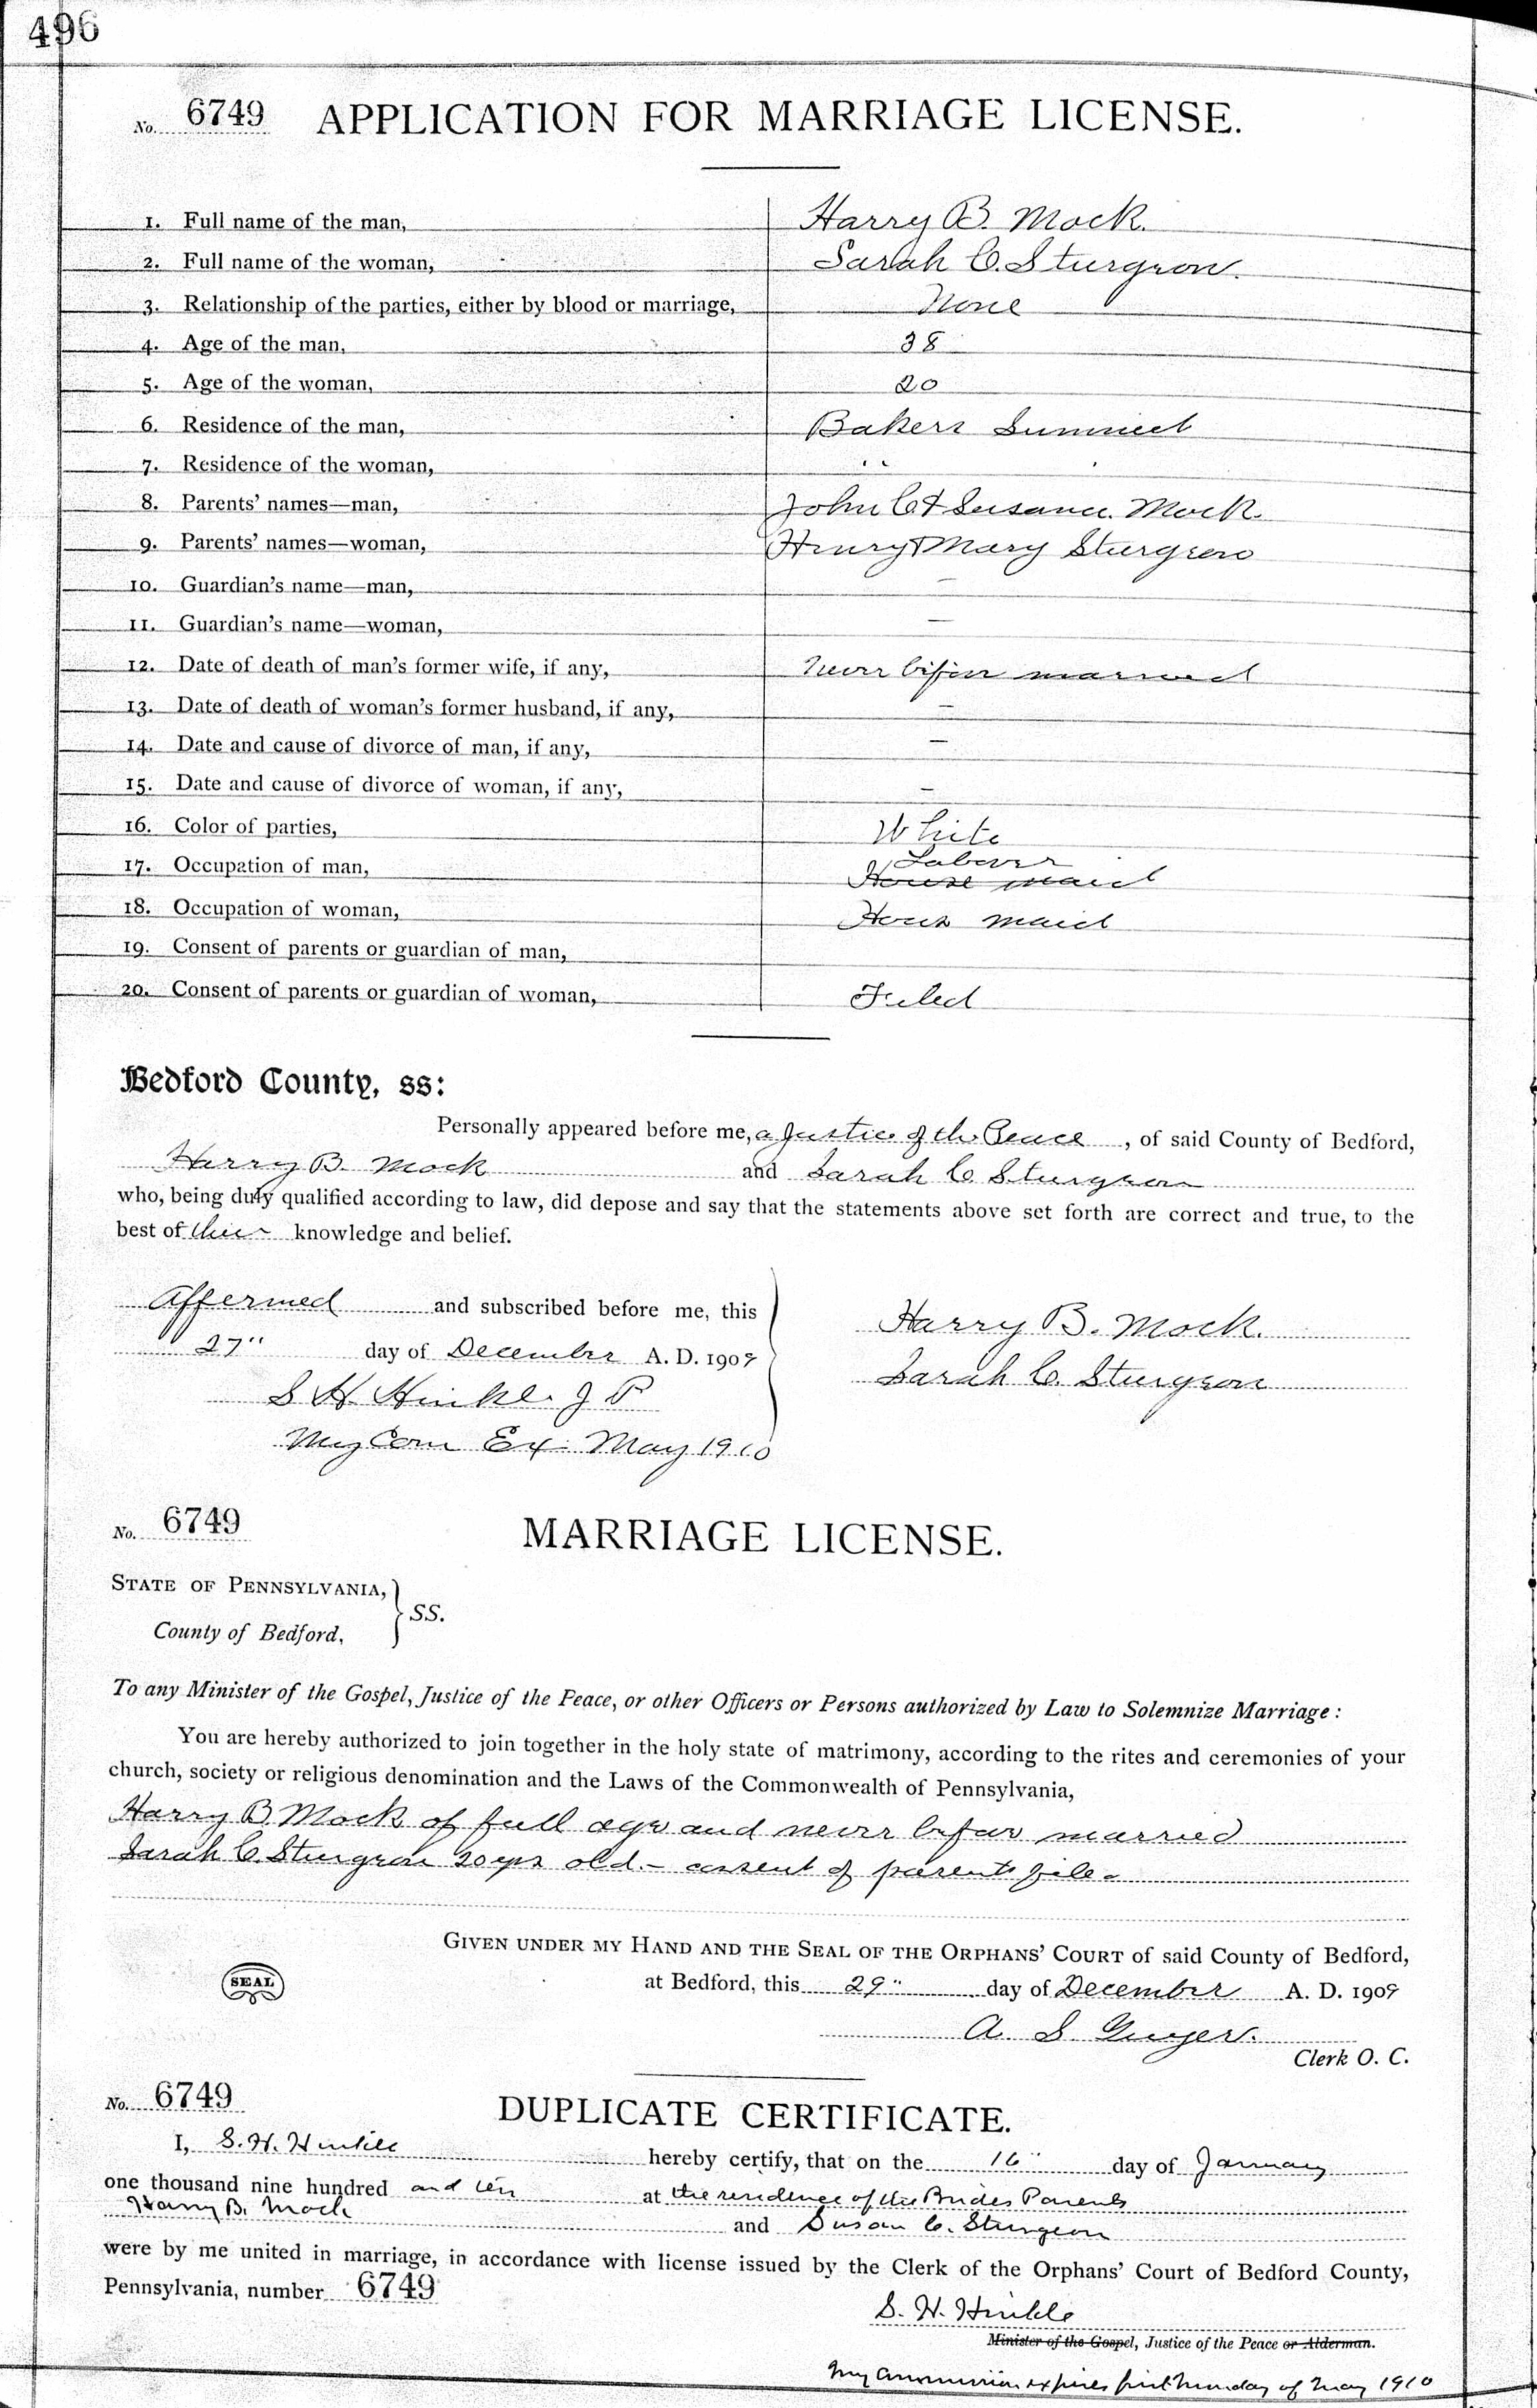 496
No. 6749 APPLICATION FOR MARRIAGE LICENSE.
1. Full name of the man, Harry B. Mock.
2. Full name of the woman, Sarah C. Sturgeon.
3. Relationship of the parties, either by blood or marriage, None
4. Age of the man, 38
5. Age of the woman, 20
6. Residence of the man, Bakers Summit
7. Residence of the woman, " "
8. Parents' names—man, John C & Susana Mock.
9. Parents' names—woman, Henry & Mary Sturgeon
10. Guardian's name—man, —
11. Guardian's name—woman, —
12. Date of death of man's former wife, if any, Never before married
13. Date of death of woman's former husband, if any, —
14. Date and cause of divorce of man, if any, —
15. Date and cause of divorce of woman, if any, —
16. Color of parties, White
Laborer
17. Occupation of man, House maid
18. Occupation of woman, House maid
19. Consent of parents or guardian of man,
20. Consent of parents or guardian of woman, Filed
Bedford County, ss:
Personally appeared before me, a Justice of the Peace, of said County of Bedford,
Harry B. Mock and Sarah C Sturgeon
who, being duly qualified according to law, did depose and say that the statements above set forth are correct and true, to the
best of their knowledge and belief.
Affermed and subscribed before me, this
27" day of December A. D. 1909
S H Hinkle J P
My Com Ex May 1910
Harry B. Mock.
Sarah C. Sturgeon
No. 6749 MARRIAGE LICENSE.
STATE OF PENNSYLVANIA,
County of Bedford, } SS.
To any Minister of the Gospel, Justice of the Peace, or other Officers or Persons authorized by Law to Solemnize Marriage:
You are hereby authorized to join together in the holy state of matrimony, according to the rites and ceremonies of your
church, society or religious denomination and the Laws of the Commonwealth of Pennsylvania,
Harry B. Mock of full age and never before married
Sarah C. Sturgeon 20 yrs old - consent of parents file.
GIVEN UNDER MY HAND AND THE SEAL OF THE ORPHANS' COURT of said County of Bedford,
SEAL
at Bedford, this 29" day of December A. D. 1909
A. S. Guyer.
Clerk O. C.
No. 6749 DUPLICATE CERTIFICATE.
I, S. H. Hinkle hereby certify, that on the 16" day of January
one thousand nine hundred and ten at the residence of the Brides Parents
Harry B. Mock and Susan C. Sturgeon
were by me united in marriage, in accordance with license issued by the Clerk of the Orphans' Court of Bedford County,
Pennsylvania, number 6749
S. H. Hinkle
Minister of the Gospel, Justice of the Peace or Alderman.
My Commission expires first Monday of May 1910